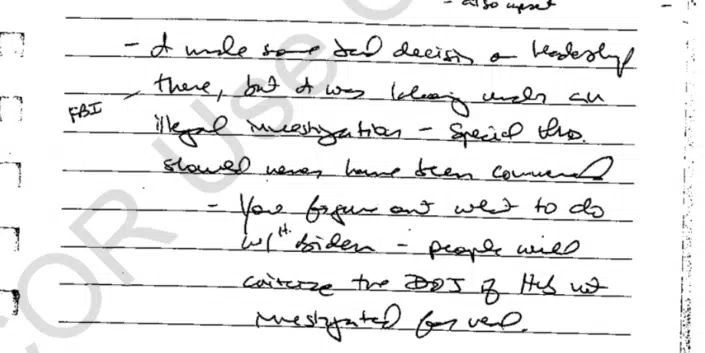 - also upset
- I made some bad decisions on leadership
FBI there, but I was laboring under an
illegal investigation - Special Pros.
should never have been commenced
- You figure out what to do
w/ H. Biden - people will
criticize the DOJ if he's not
investigated for real.
COR Use